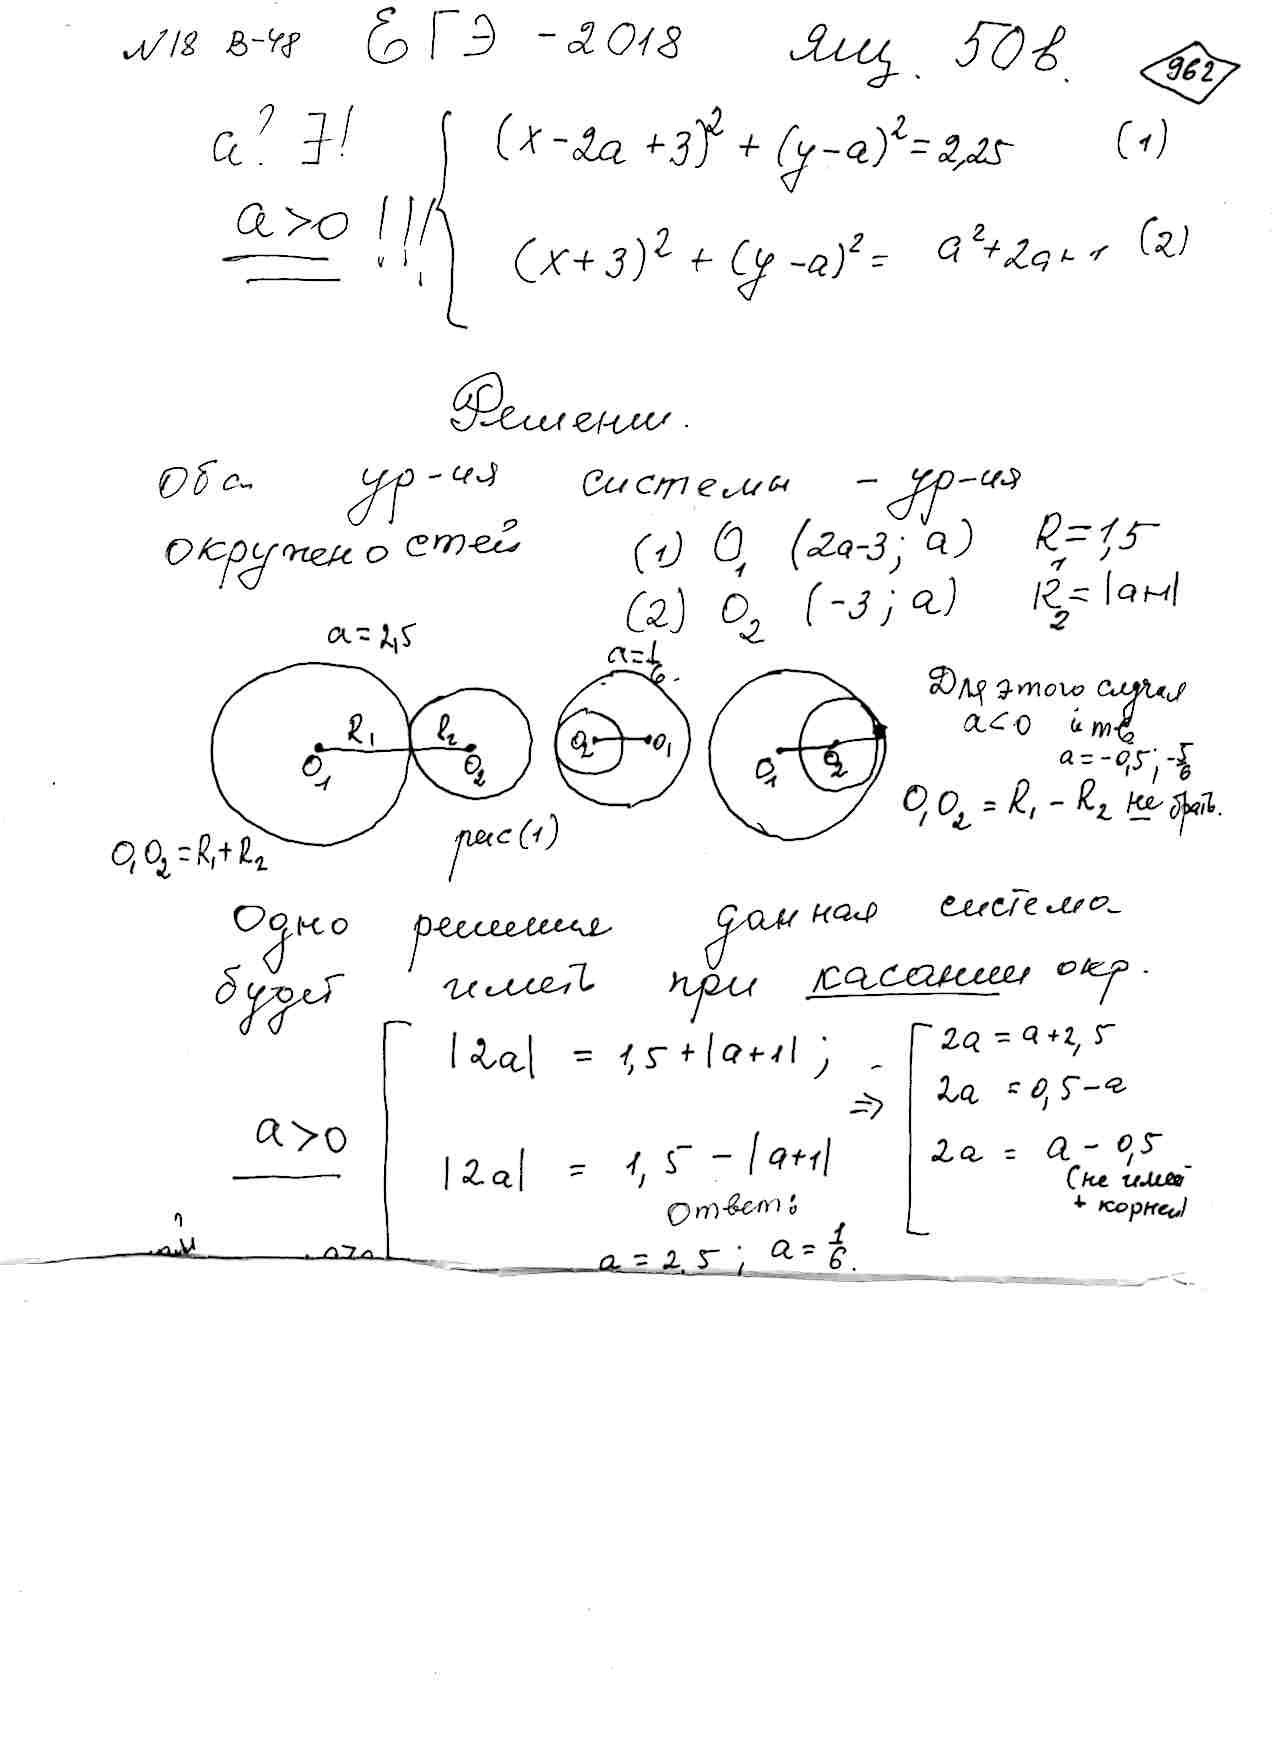 N18 В-48 ЕГЭ - 2018 Ящ. 50в. 962
a? ∃! (x-2a+3)² + (y-a)² = 2,25 (1)
a>0 !!! (x+3)² + (y-a)² = a²+2a+1 (2)
Решение.
Оба ур-ия системы - ур-ия
окружностей (1) O₁ (2a-3; a) R₁=1,5
(2) O₂ (-3; a) R₂=|a+1|
a=2,5 a=1/6.
Для этого случая
a<0 и т.е.
a=-0,5; -5/6
R₁ R₂ O₁ O₂ O₂ O₁ O₁ O₂
O₁O₂ = R₁ - R₂ не брать.
O₁O₂ = R₁+R₂ рис(1)
Одно решение данная система
будет иметь при касании окр.
|2a| = 1,5 + |a+1| ; 2a = a+2,5
a>0 ⇒ 2a = 0,5-a
|2a| = 1,5 - |a+1| 2a = a - 0,5
(не имеет
+ корней)
Ответ:
a = 2,5 ; a = 1/6.